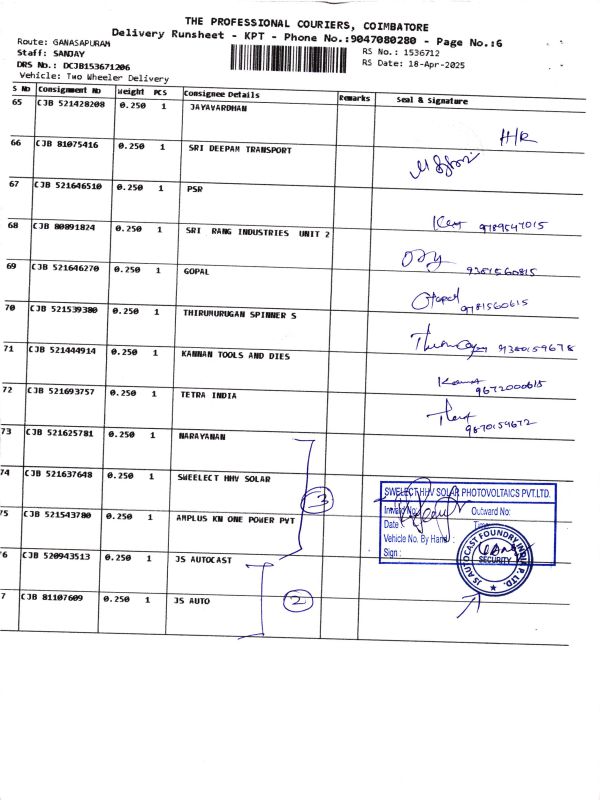 THE PROFESSIONAL COURIERS, COIMBATORE
Delivery Runsheet - KPT - Phone No.:9047080280 - Page No.:6
Route: GANASAPURAM
Staff: SANJAY
DRS No.: DCJB153671206
Vehicle: Two Wheeler Delivery
RS No.: 1536712
RS Date: 18-Apr-2025
S No Consignment No Weight PCS Consignee Details Remarks Seal & Signature
65 CJB 521428208 0.250 1 JAYAVARDHAN H/R
66 CJB 81075416 0.250 1 SRI DEEPAM TRANSPORT
67 CJB 521646510 0.250 1 PSR 9789547015
68 CJB 80891824 0.250 1 SRI RANG INDUSTRIES UNIT 2 9361560815
69 CJB 521646270 0.250 1 GOPAL Gopal 9781560615
70 CJB 521539380 0.250 1 THIRUMURUGAN SPINNER S 9380159678
71 CJB 521444914 0.250 1 KANNAN TOOLS AND DIES 9672000615
72 CJB 521693757 0.250 1 TETRA INDIA 9870159672
73 CJB 521625781 0.250 1 NARAYANAN
74 CJB 521637648 0.250 1 SWEELECT HHV SOLAR
3
75 CJB 521543780 0.250 1 AMPLUS KN ONE POWER PVT
76 CJB 520943513 0.250 1 JS AUTOCAST
77 CJB 81107609 0.250 1 JS AUTO
2
SWELECT HHV SOLAR PHOTOVOLTAICS PVT.LTD.
Inward No: Outward No:
Date : Time:
Vehicle No. By Hand :
Sign :
JS AUTOCAST FOUNDRY INDIA P. LTD.
SECURITY